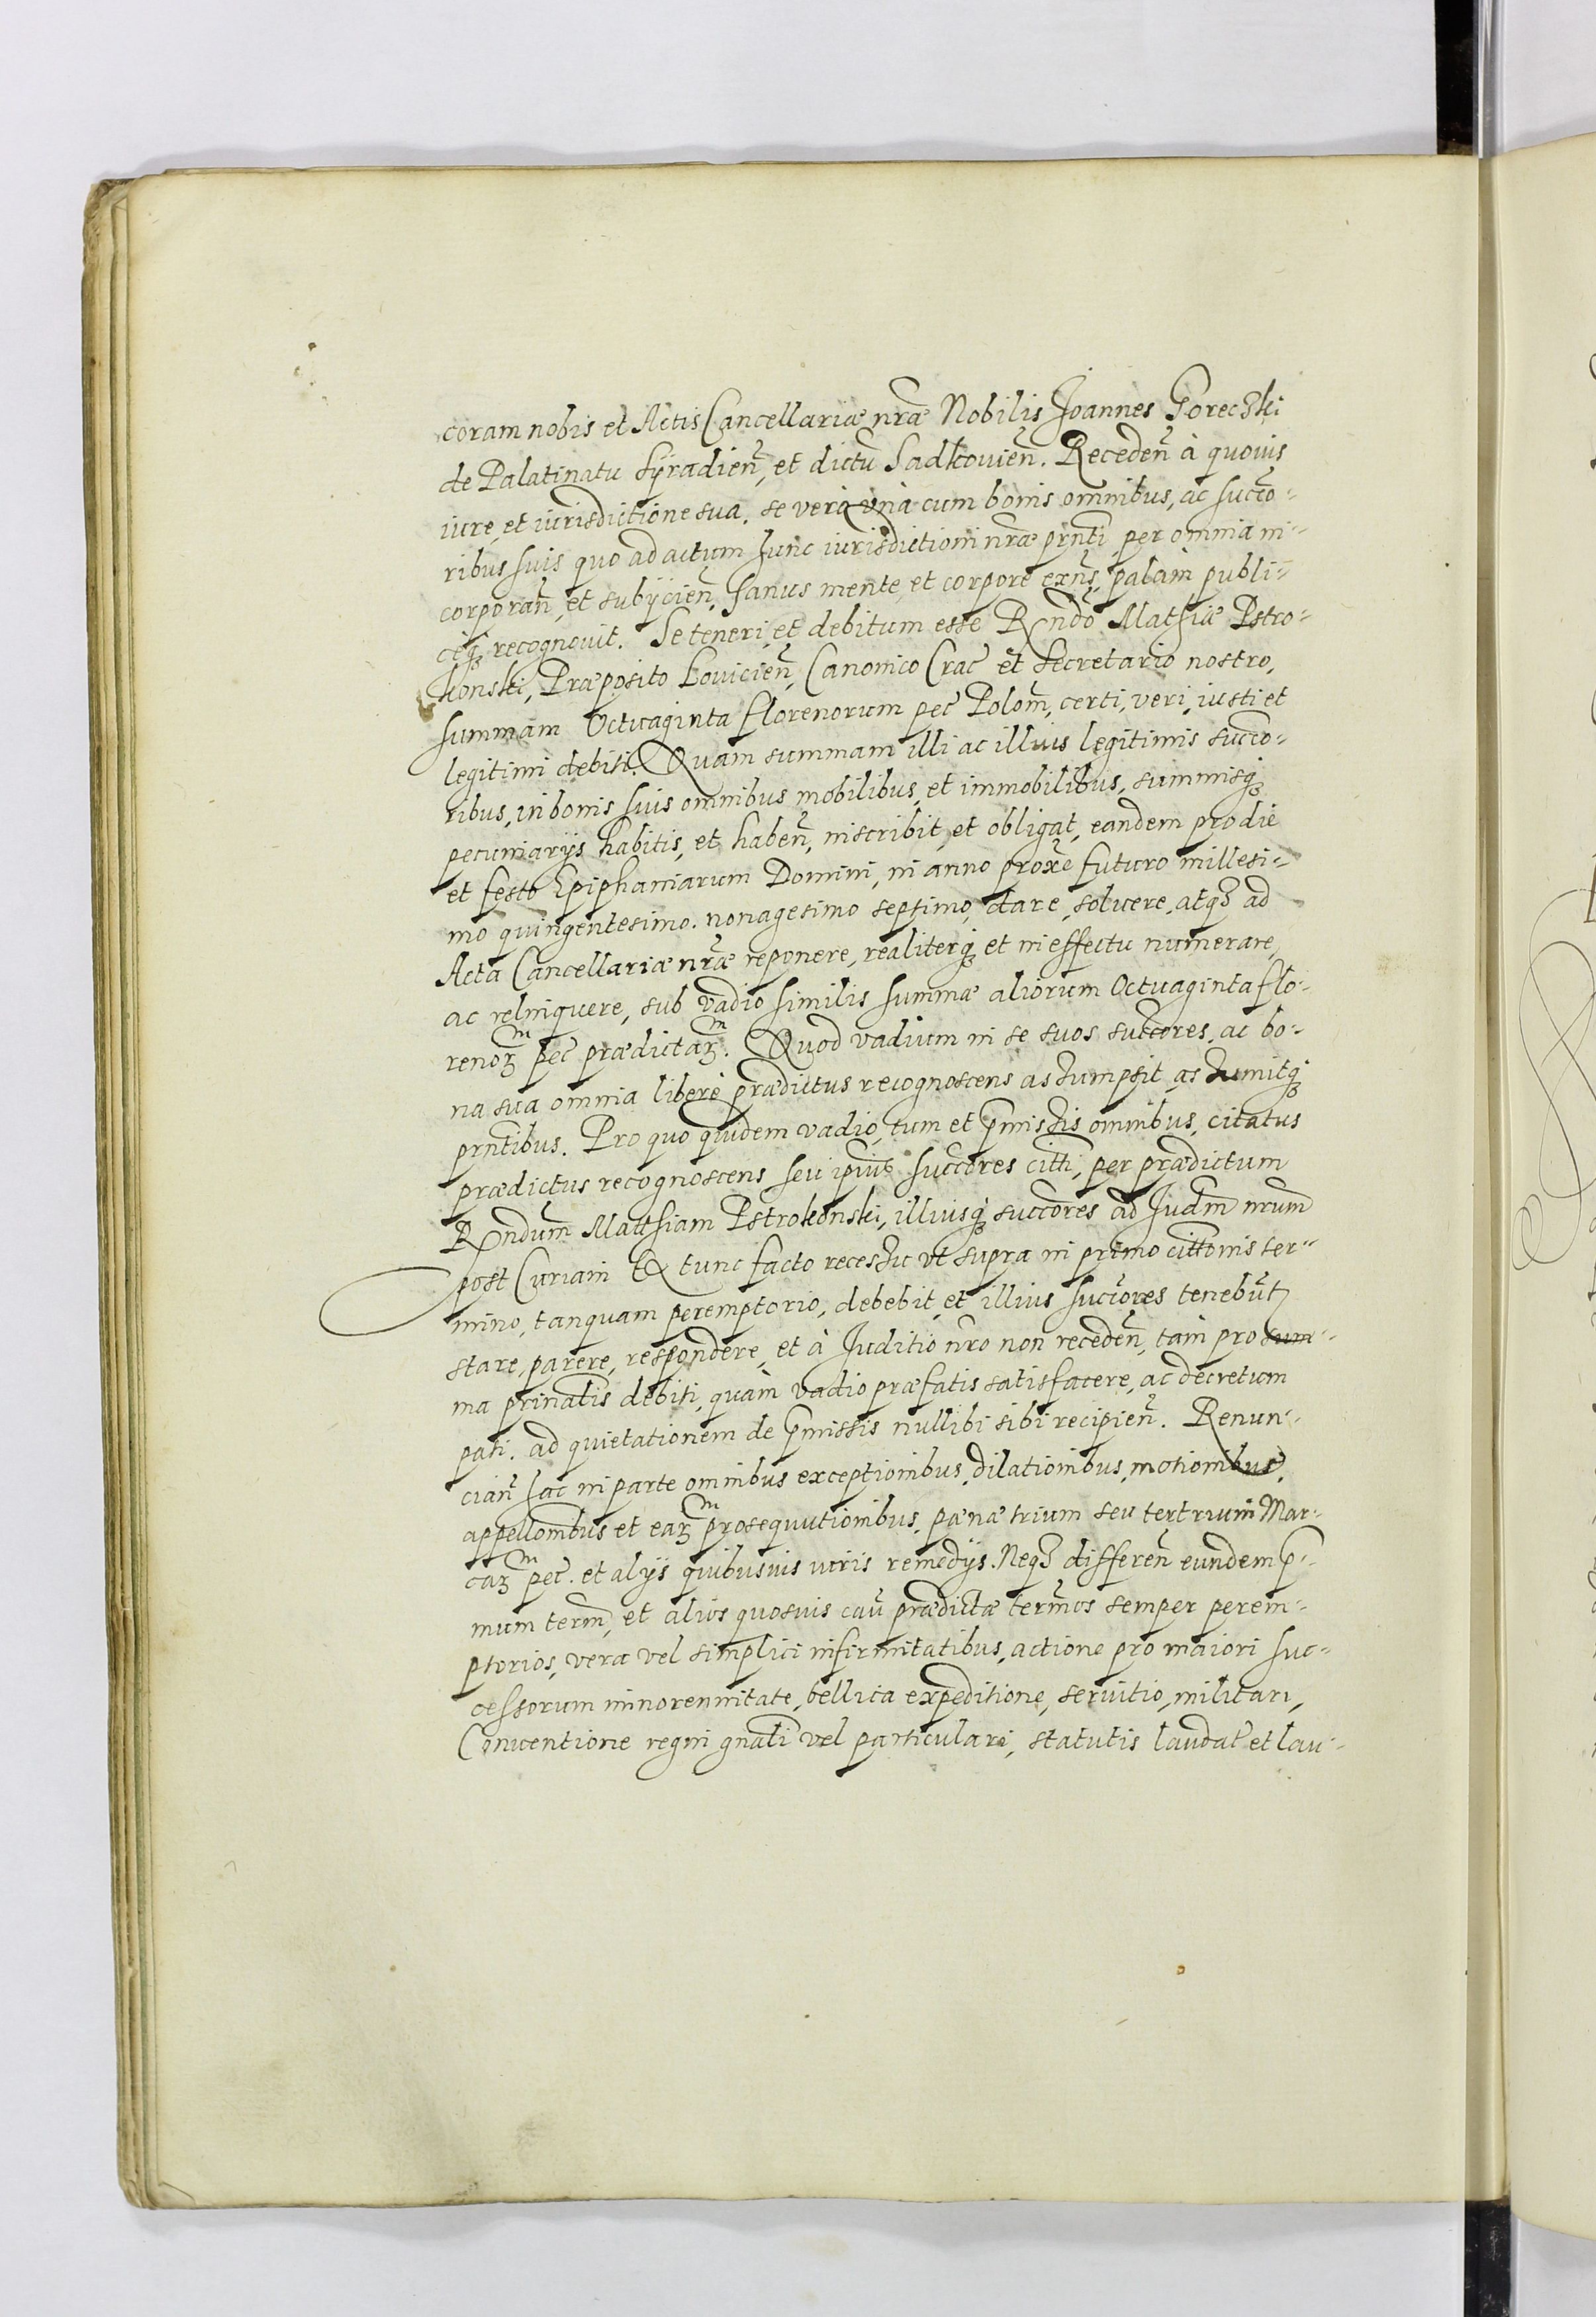 coram nobis et Actis Cancellariæ nr̃æ Nobilis Joannes Goreczki
de Palatinatu Syradien̄, et dictū Sadkouien̄. Receden̄ à quouis
iure, et iurisdictione sua, se verò vnà cum bonis omnibus, ac succo-
ribus suis quo ad actum hunc iurisdictioni nr̃æ prn̄ti per omnia in-
corporan̄, et subijcien̄, sanus mente et corpore exn̄s, palàm publi-
ceq₃ recognouit. Se teneri, et debitum esse Rn̄do Mathiæ Pstro-
konski, Præposito Louicien̄, Canonico Crac̄ et Secretario nostro,
summam Octuaginta florenorum pec̄ Polon̄, certi, veri, iusti et
legitimi debiti. Quam summam illi ac illius legitimis succo-
ribus, in bonis suis omnibus mobilibus, et immobilibus, summisq₃
pecuniarijs habitis, et haben̄, inscribit, et obligat, eandem pro die
et festo Epiphaniarum Domini, in anno proxē futuro millesi-
mo quingentesimo nonagesimo septimo, dare, soluere, atq₃ ad
Acta Cancellariæ nr̃æ reponere, realiterq₃ et in effectu numerare,
ac relinquere, sub vadio similis summæ aliorum Octuaginta flo-
renoꝝm pec̄ prædictaꝝm. Quod vadium in se suos succores, ac bo-
na sua omnia liberè prædictus recognoscens assumpsit, assumitq₃
prn̄tibus. Pro quo quidem vadio, tum et p̄missis omnibus, citatus
prædictus recognoscens seu ipīus succores citti, per prædictum
Rn̄dum Mathiam Pstrokonski, illiusq₃ succores ad Judm̄ nrum̄
post Curiam Ex tunc facto recessu vt supra in primo cittonis ter-
mino, tanquam peremptorio, debebit, et illius succores tenebūt
stare, parere, respondere, et à Juditio nr̃o non receden̄, tam pro sum-
ma prin̄alis debiti, quàm vadio præfatis satisfacere, ac decretum
pati, ad quietationem de p̄missis nullibi sibi recipien̄. Renun-
cian̄ hac in parte omnibus exceptionibus, dilationibus, motionibus,
appellonibus et eaꝝm prosequutionibus, pænæ trium seu ter trium Mar-
caꝝm pec̄. et alijs quibusuis iuris remedijs. Neq₃ differen̄ eundem p̄-
mum term̄, et alios quosuis cau̅ prædictæ term̄os semper perem-
ptorios, vera vel simplici infirmitatibus, actione pro maiori suc-
cessorum minorennitate, bellica expeditione, seruitio, militari,
Conuentione regni gn̄ali vel particulari, statutis laudat̄ et lau-